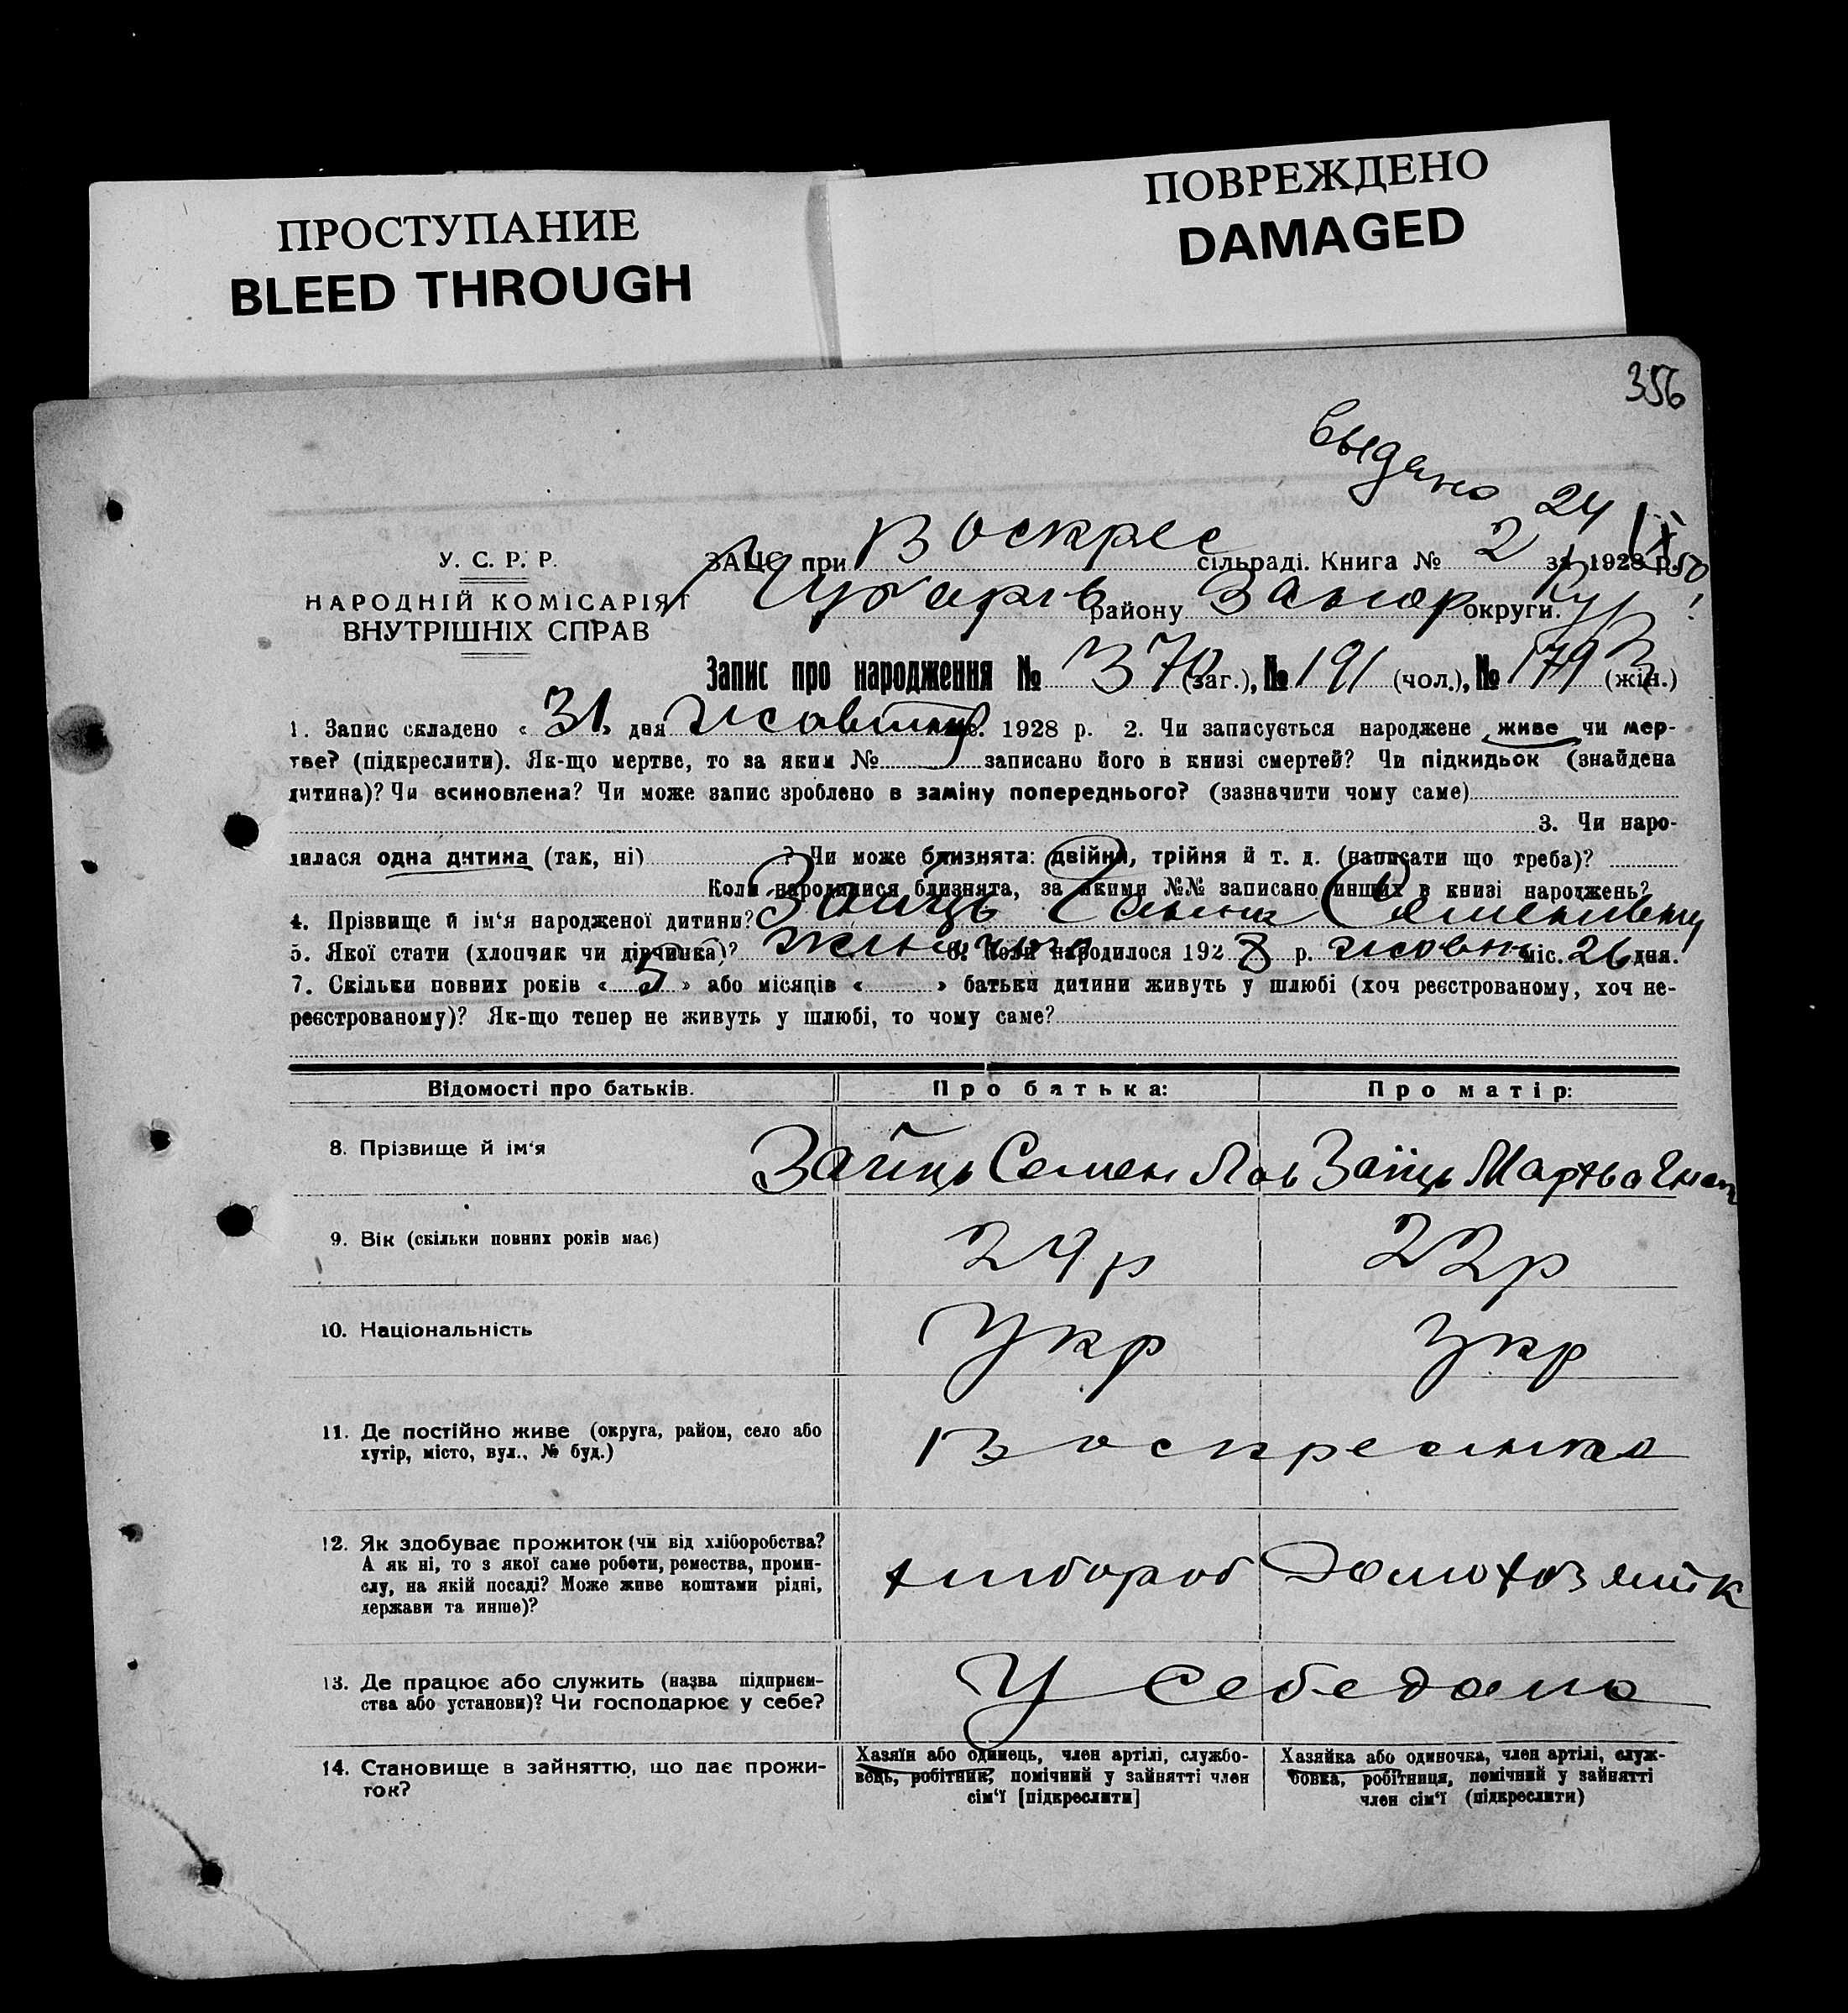 ПРОСТУПАНИЕ
BLEED THROUGH
ПОВРЕЖДЕНО
DAMAGED
356
выдано 24
У. С. Р. Р.
НАРОДНІЙ КОМІСАРІЯТ
ВНУТРІШНІХ СПРАВ
ЗАЦС при Воскрес сільраді. Книга № 2 за 1928 р.
району Запор округи.
Запис про народження № 370 (заг.), № 191 (чол.), № 179 (жін.)
1. Запис складено « 31 » дня жовтня міс. 1928 р. 2. Чи записується народжене живе чи мер-
тве? (підкреслити). Як-що мертве, то за яким № записано його в книзі смертей? Чи підкидьок (знайдена
дитина)? Чи всиновлена? Чи може запис зроблено в заміну попереднього? (зазначити чому саме)
3. Чи наро-
дилася одна дитина (так, ні) ? Чи може близнята: двійня, трійня й т. д. (написати що треба)?
Коли народилися близнята, за якими №№ записано инших в книзі народжень?
4. Прізвище й ім‘я народженої дитини? Заїць Ганна Семенівна
5. Якої статі (хлопчик чи дівчинка)? 6. Коли народилося 1928 р. жовтн міс. 26 дня.
7. Скільки повних років « 5 » або місяців « » батьки дитини живуть у шлюбі (хоч реєстрованому, хоч не-
реєстрованому)? Як-що тепер не живуть у шлюбі, то чому саме?
Відомості про батьків. Про батька: Про матір:
8. Прізвище й ім‘я Заїць Семен Заїць Марфа
9. Вік (скільки повних років має) 24р 22р
10. Національність Укр Укр
11. Де постійно живе (округа, район, село або
хутір, місто, вул., № буд.) Воскресенка
12. Як здобуває прожиток (чи від хліборобства?
А як ні, то з якої саме роботи, ремества, проми-
слу, на якій посаді? Може живе коштами рідні,
держави та инше)? хлібороб Домохозяйк
13. Де працює або служить (назва підприєм-
ства або установи)? Чи господарює у себе? У себе дома
14. Становище в зайняттю, що дає прожи-
ток?
Хазяїн або одинець, член артілі, службо-
вець, робітник, помічний у зайнятті член
сім‘ї [підкреслити]
Хазяйка або одиночка, член артілі, служ-
бовка, робітниця, помічний у зайнятті
член сім‘ї (підкреслити)